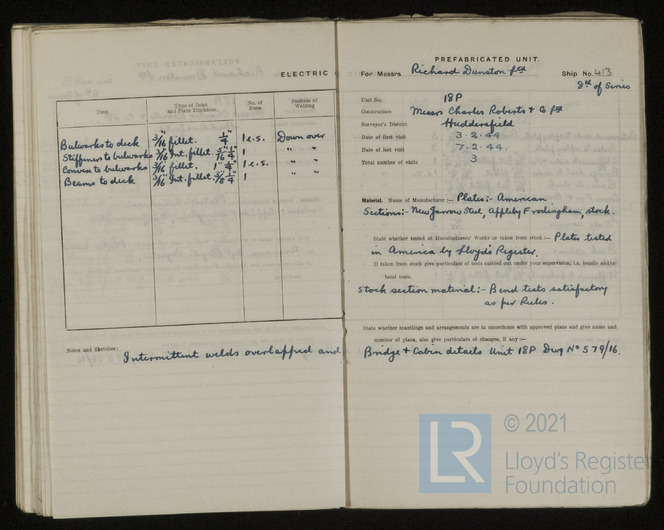 ELECTRIC
Item
Type of Joint and Plate Thickness
No. of Runs
Position of Welding
Bulworks to deck 3/16" fillet. 1/4" 1 e.s. Down over
Stiffeners to bulworks 3/16" Int. fillet. 5/16" 1/4" 1 " "
Convex to bulworks 3/16" fillet. 1" 1/4" 1 e.s. " "
Beams to deck 3/16" Int. fillet. 3/8" 1/4" 1 " "
Notes and Sketches:
Intermittent welds overlapped and
PREFABRICATED UNIT.
For Messrs Richard Dunston Ltd Ship No. 413
8th of Series
Unit No. 18P
Constructors Messrs Charles Roberts & Co Ltd
Surveyor's District Huddersfield
Date of first visit 3-2-44
Date of last visit 7-2-44
Total number of visits 3
Material. Name of Manufacturer:— Plates:- American
Sections:- New Jarrow Steel, Appleby Frodingham, stock.
State whether tested at Manufacturers' Works or taken from stock:— Plates tested
in America by Lloyd's Register.
If taken from stock give particulars of tests carried out under your supervision, i.e. tensile and/or
bend tests.
Stock section material:- Bend tests satisfactory
as per Rules.
State whether scantlings and arrangements are in accordance with approved plans and give name and
number of plans, also give particulars of changes, if any:—
Bridge & Cabin details Unit 18P Dwg No 579/16.
LR
© 2021
Lloyd's Register
Foundation